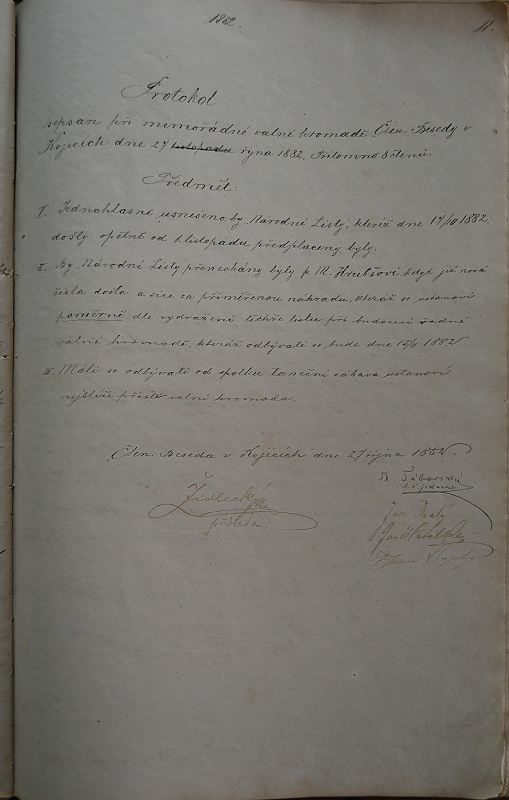 1882.
11.
Protokol
sepsán při mimořádné valné hromadě Čten. Besedy v
Kojicích dne 27 listopadu října 1882. Přítomno 8 členů.
Předmět:
I. Jednohlasně usnešeno, by Národní Listy, kteréž dne 17/10 1882.
došly opětně od 1. listopadu předplaceny byly.
II. By Národní Listy přenechány byly p. M. Hrubšovi, když již nová
čísla došla a sice za přiměřenou náhradu, kteráž se ustanoví
poměrně dle vydražení těchže listů při budoucí řádné
valné hromadě, kteráž odbývati se bude dne 15/11 1882
III. Máli se odbývati od spolku taneční zábava ustanoví
nejblíže příští valní hromada.
Čten. Beseda v Kojicích dne 27 října 1882.
Židlecký
předseda.
t. č. jednatel
Jos. Bralý
Jan
Jan